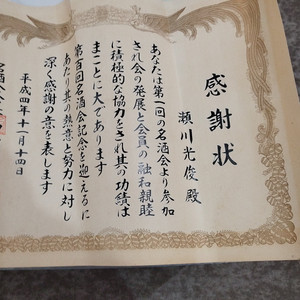 感謝状
瀬川光俊殿
あなたは第一回の名酒会より参加
され会の発展と会員の融和親睦
に積極的な協力をされ其の功績は
まことに大であります
第百回の名酒会記念を迎えるに
あたり其の熱意と努力に対し
深く感謝の意を表します
平成四年十一月十四日
名酒会